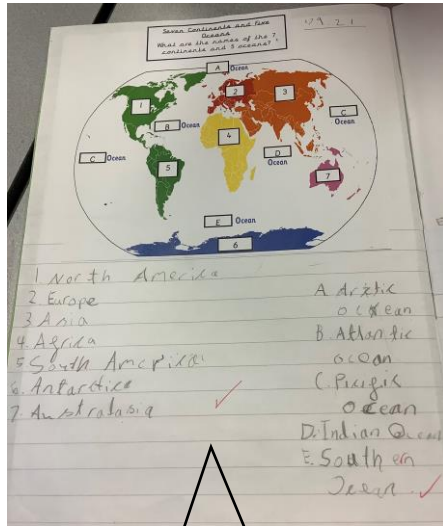 Seven Continents and Five
Oceans
What are the names of the 7
continents and 5 oceans?
1/9/21
A Ocean
1
2
3
B Ocean
C Ocean
4
C Ocean
D Ocean
5
7
E Ocean
6
1 North America
2 Europe
3 Asia
4. Africa
5 South America
6. Antarctica
7. Australasia
A Arctic
ocean
B. Atlantic
ocean
C. Pacific
ocean
D. Indian Ocean
E. Southern
Ocean